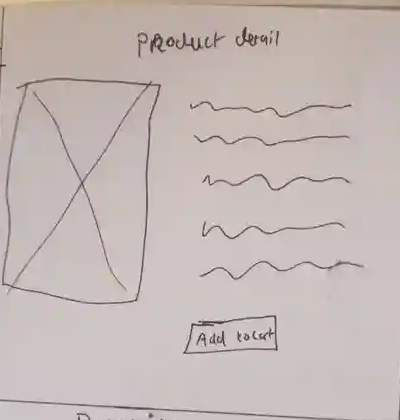 Product detail
Add to cat